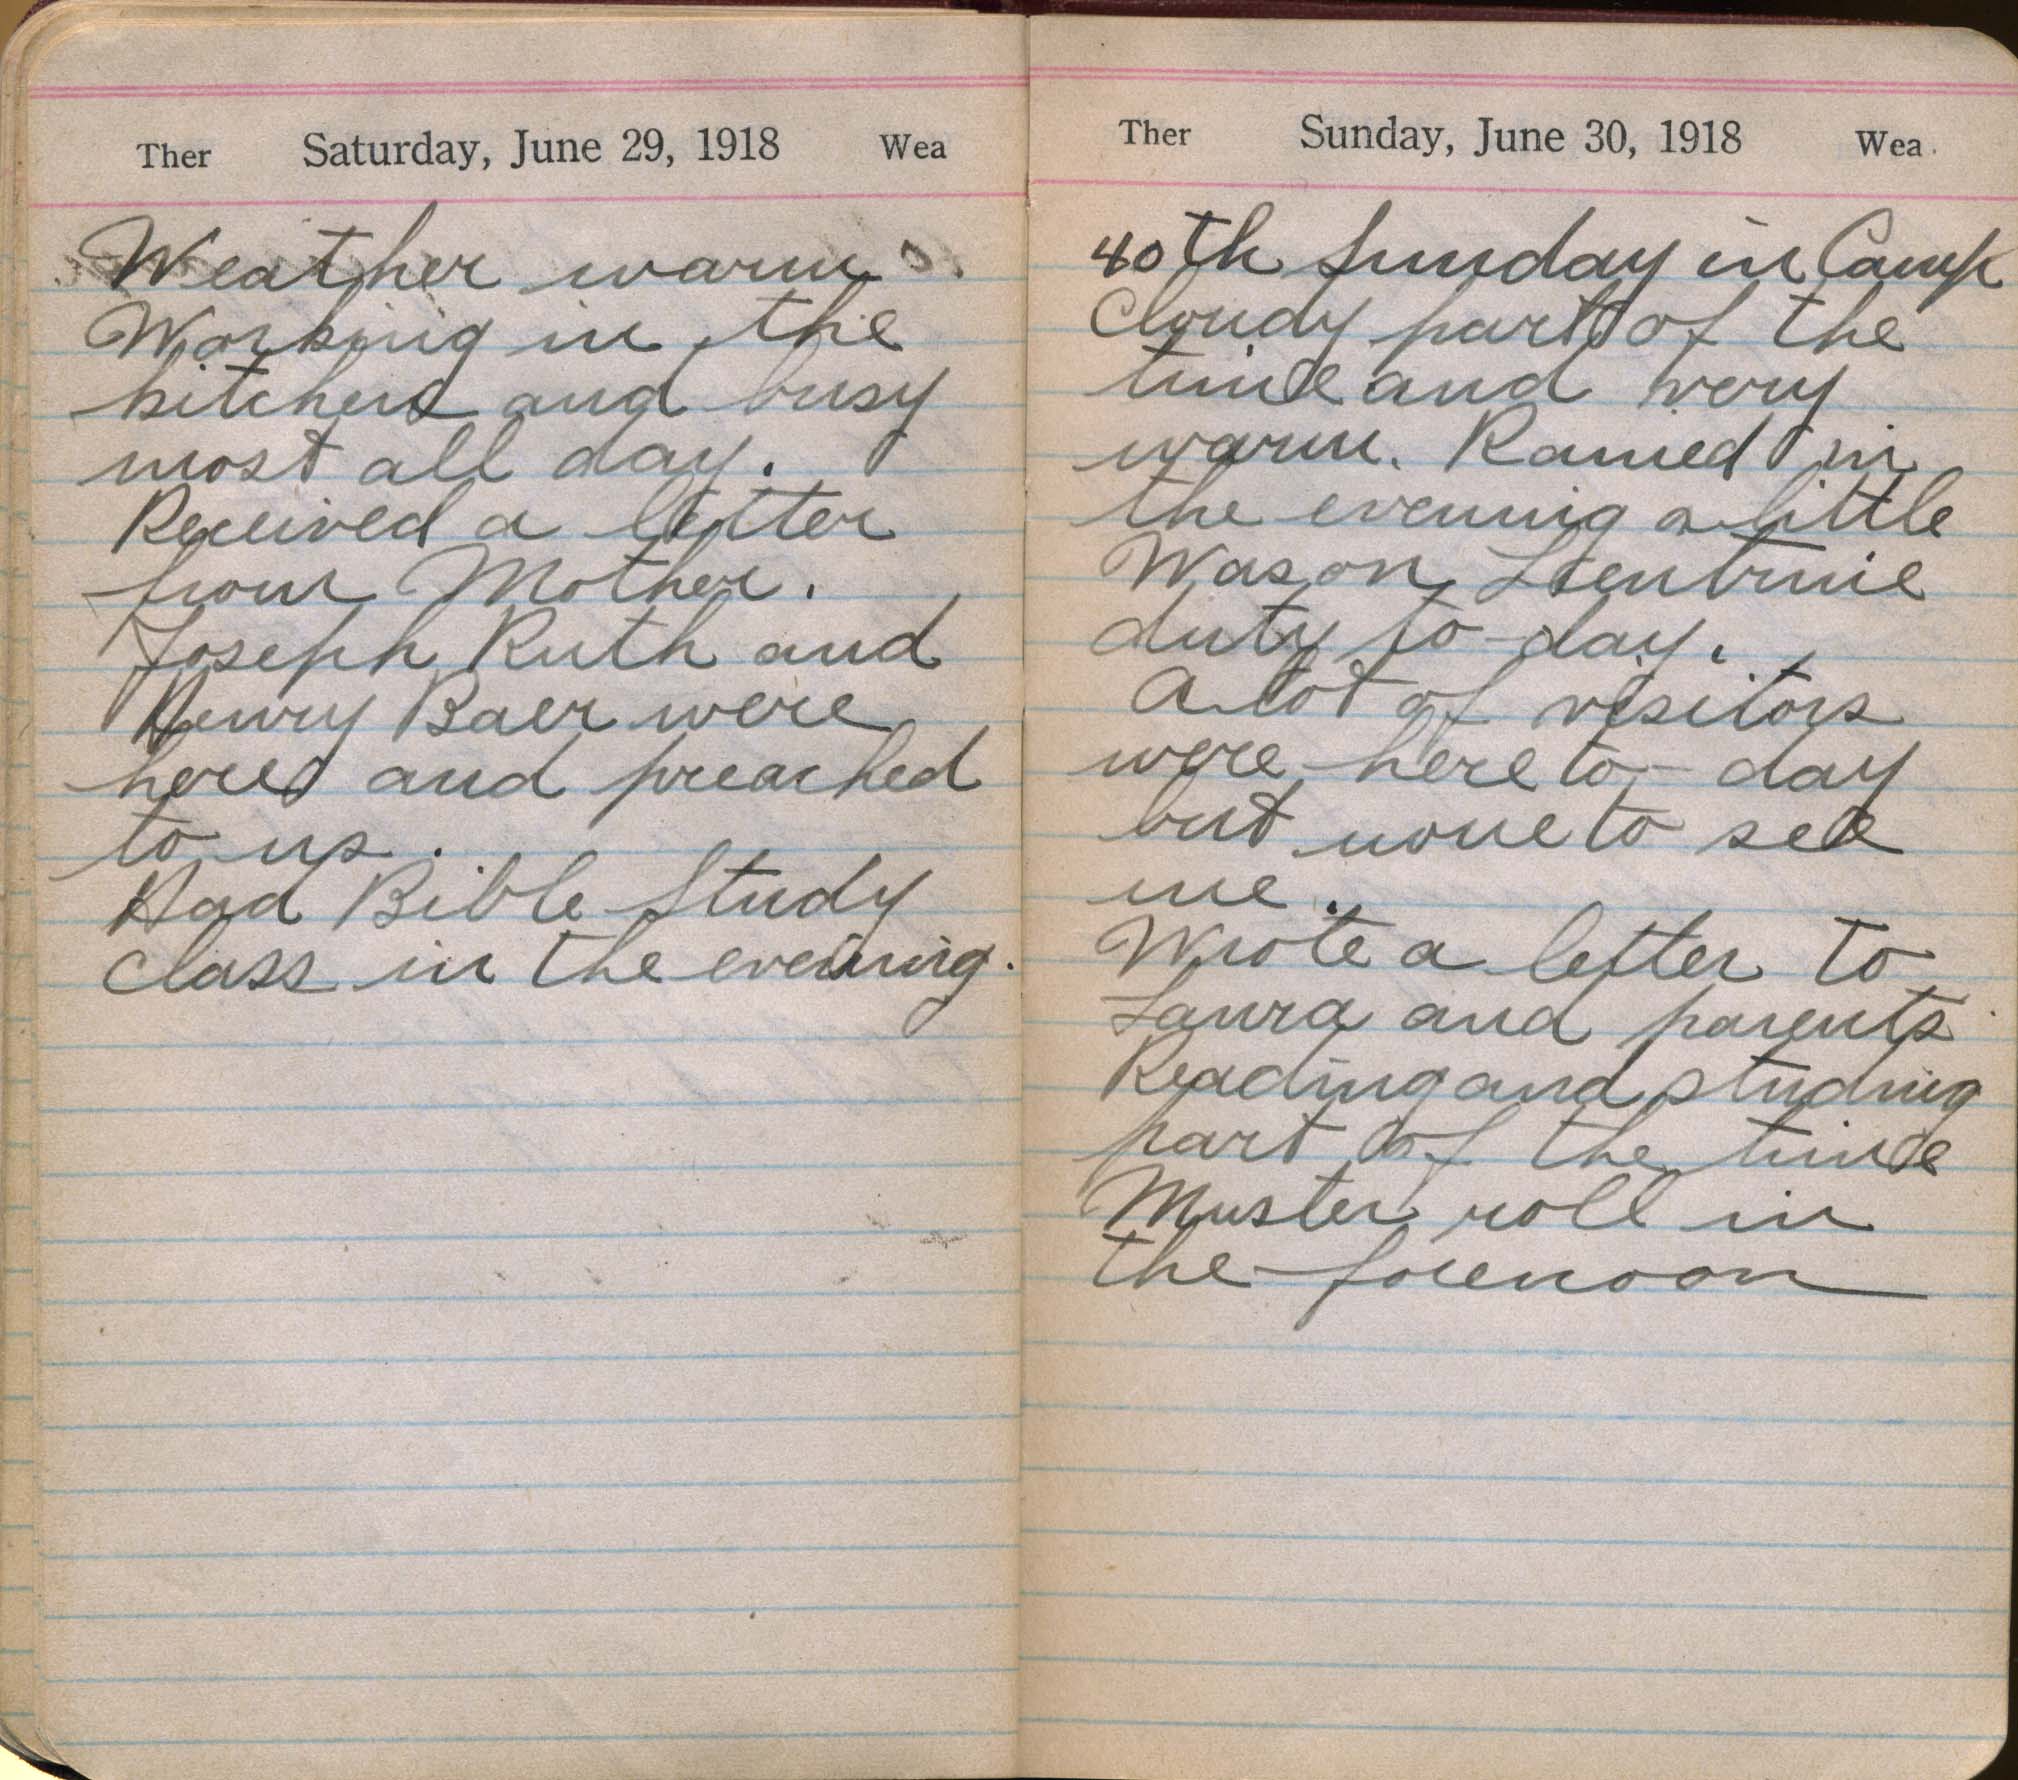 Ther Saturday, June 29, 1918 Wea
Weather warm.
Working in the
kitchen and busy
most all day.
Received a letter
from Mother.
Joseph Ruth and
Henry Baer were
here and preached
to us.
Had Bible Study
class in the evening.
Ther Sunday, June 30, 1918 Wea.
40th Sunday in Camp
Cloudy part of the
time and very
warm. Rained in
the evening a little
Was on
duty to-day.
A lot of visitors
were here to-day
but none to see
me.
Wrote a letter to
Laura and parents
Reading and studing
part of the time
Muster roll in
the forenoon